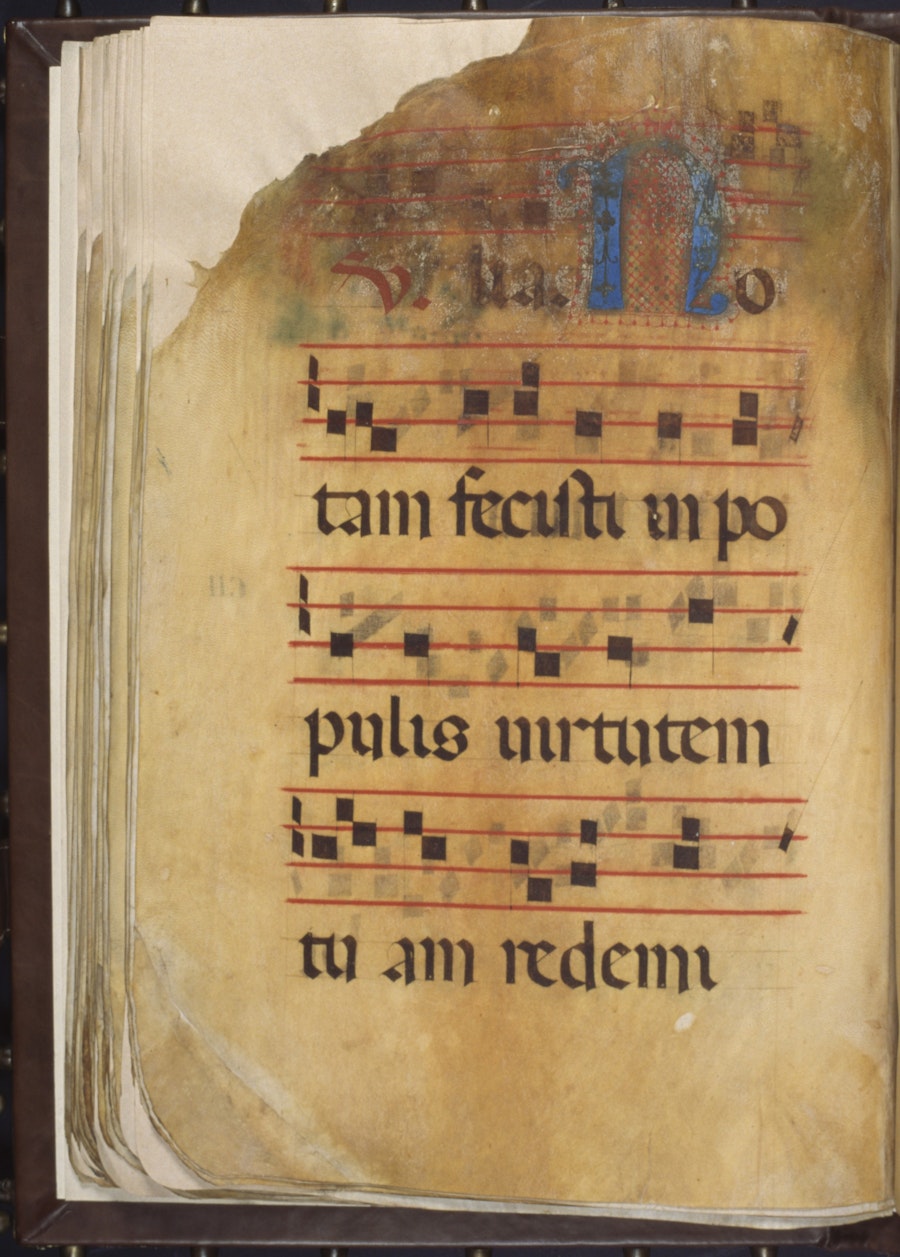 V. na. No
tam fecisti in po
pulis uirtutem
tu am redemi